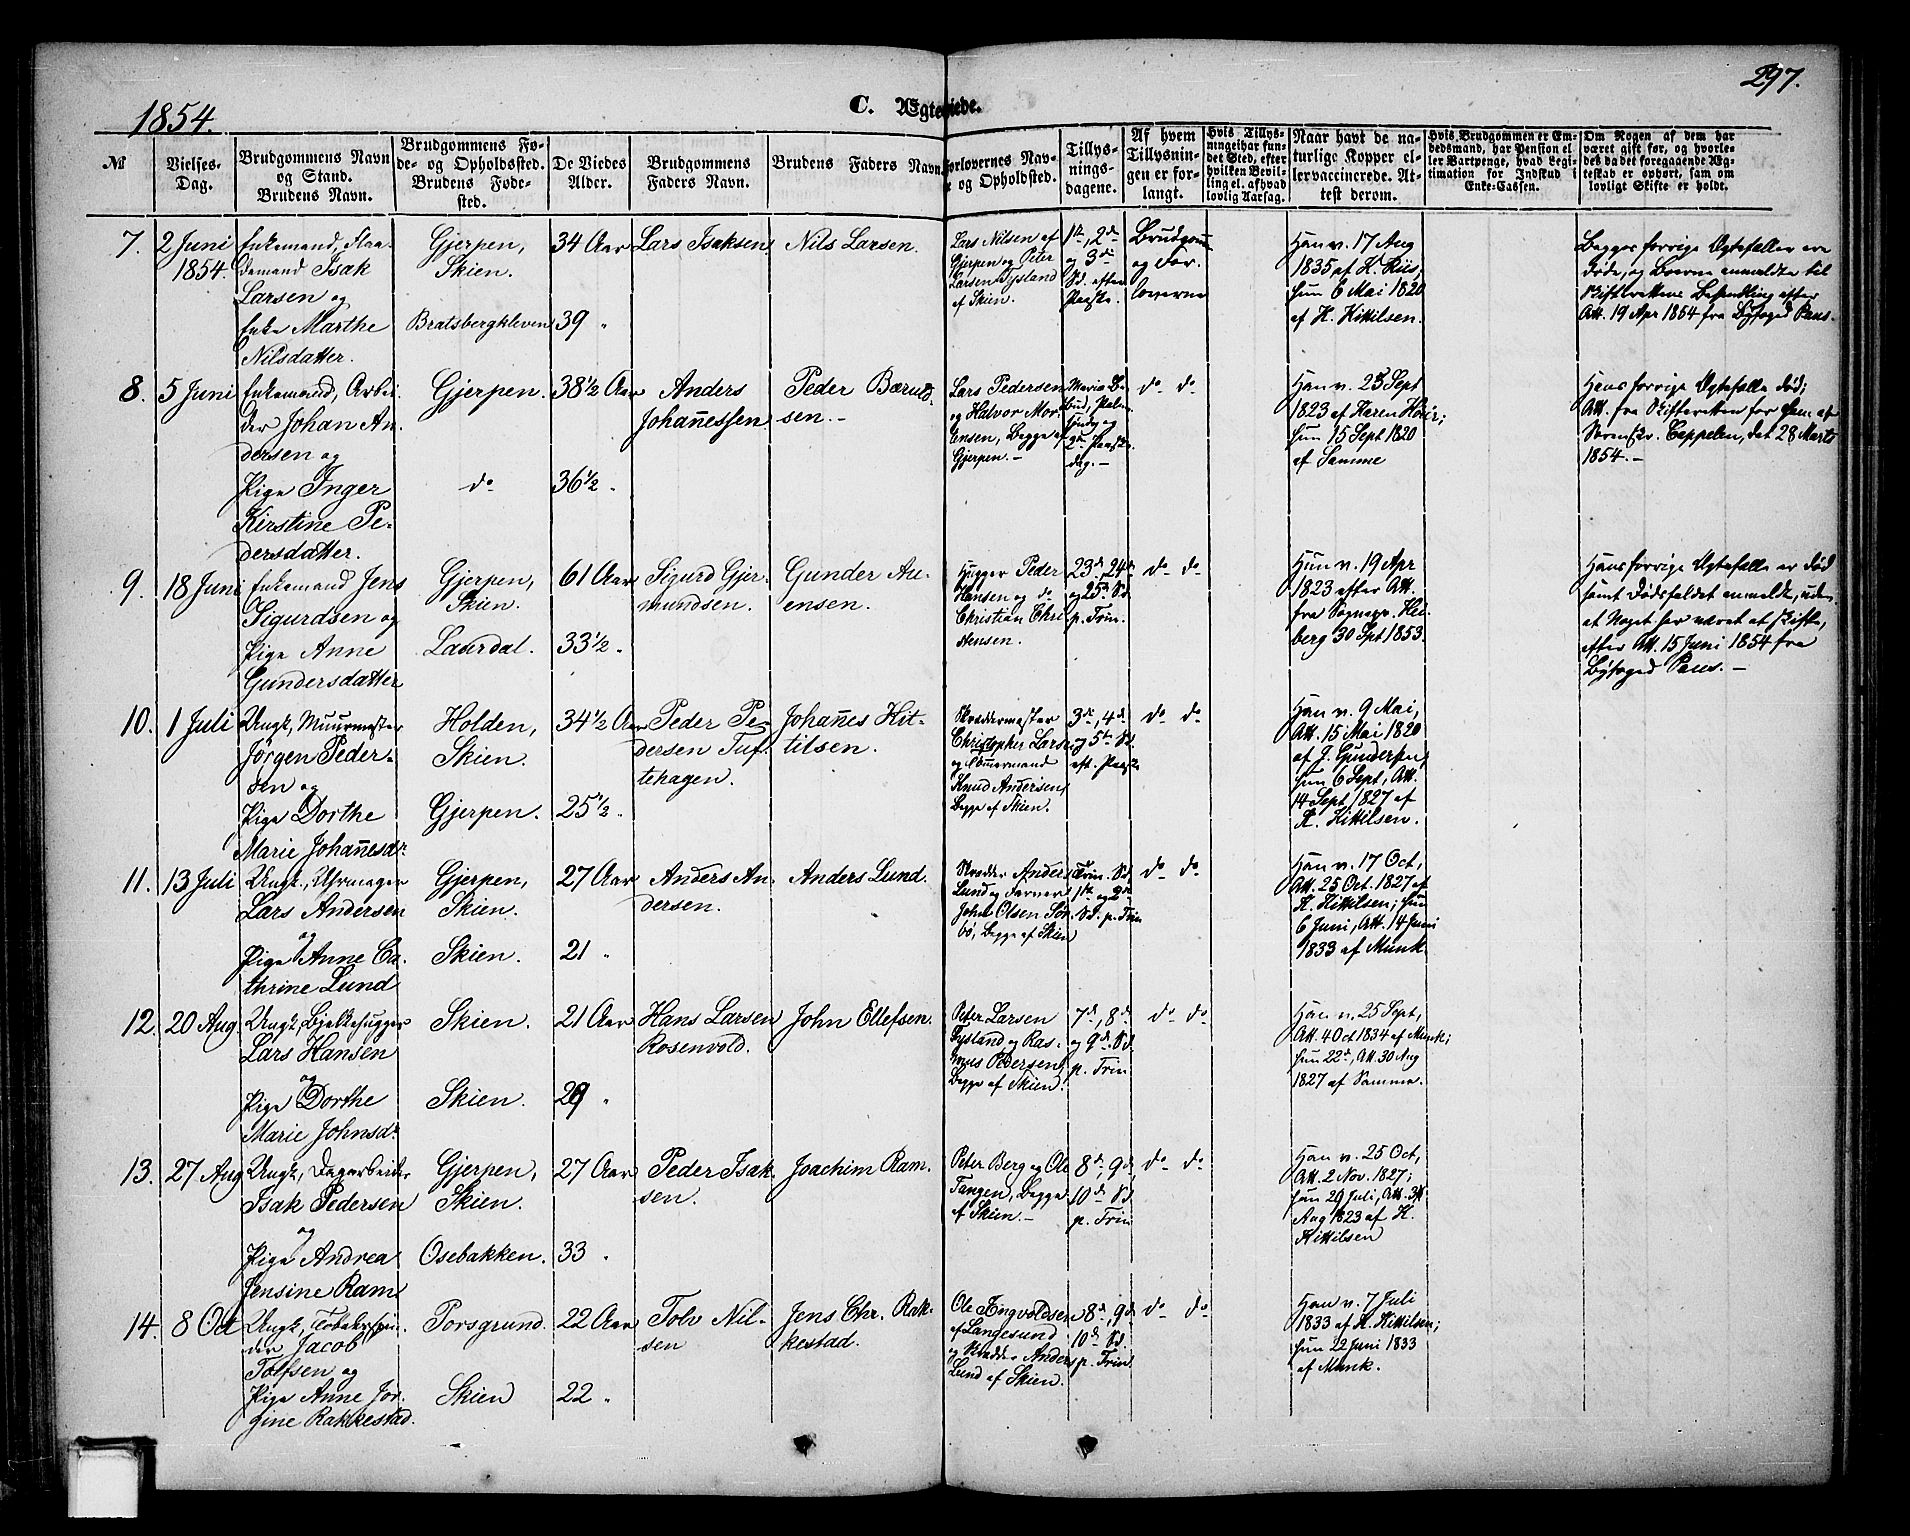 297.
1854.
C. Ægteviede.
№
Vielses-
Dag.
Brudgommens Navn
og Stand.
Brudens Navn.
Brudgommens Fø-
de- og Opholdssted.
Brudens Føde-
sted.
De Viedes
Alder.
Brudgommens
Faders Navn.
Brudens Faders Navn.
Forlovernes Nav-
ne og Opholdsted.
Tillys-
nings-
dagene.
Af hvem
Tillysnin-
gen er for-
langt.
Hvis Tillys-
ning ei har fun-
det Sted, efter
hvilken Bevil-
ling el. af hvad
lovlig Aarsag.
Naar havt de na-
turlige Kopper el-
ler vaccinerede. At-
test derom.
Hvis Brudgommen er Em-
bedsmand, har Pension el-
ler Vartpenge, hvad Legi-
timation for Indskud i
Enke-Cassen.
Om Nogen af dem har
været gift før, og hvorle-
des da det foregaaende Æg-
teskab er ophørt, sam om
lovligt Skifte er holdt.
7.
2 Juni
1854.
Enkemand, Flaa-
demand Isak
Larsen og
Enke Marthe
Nilsdatter.
Gjerpen,
Skien.
Bratsbergkleven
34 Aar
39 "
Lars Isaksen.
Nils Larsen.
Lars Nilsen af
Gjerpen og Peter
Larsen Tysland
af Skien.
1ste, 2de
og 3de
Sd. efter
Paaske.
Brudgom
og For-
loverne
Han v. 17 Aug
1835 af H. Riis;
hun 6 Mai 1820
af H. Kittilsen.
Begges forrige Egtefæller ere
døde, og Boerne anmeldte til
Skifterettens Behandling efter
Att. 19 Apr 1854 fra Byfoged Paus.
8.
5 Juni
Enkemand, Arbei-
der Johan An-
dersen og
Pige Inger
Kirstine Pe-
dersdatter.
Gjerpen.
do
38½ Aar
36½ "
Anders
Johanessen
Peder Bærulf-
sen.-
Lars Pedersen
og Halvor Mor-
tensen, Begge af
Gjerpen.-
Maria Be-
bud, Palm-
søndg og
2den Paaske-
dag.-
do do
Han v. 23 Sept
1823 af Karen Houir;
hun 15 Sept 1820
af Samme
Hans forrige Egtefælle død;
Att. fra Skifteretten for
Cappelen, det 28 Marts
1854.-
9.
18 Juni
Enkemand Jens
Sigurdsen og
Pige Anne
Gundersdatter
Gjerpen,
Skien.
Laurdal.
61 Aar
33½ "
Sigurd Gjer-
mundsen.
Gunder Au-
ensen.
Hugger Peder
Hansen og do
Christian Chri-
stensen.
23de, 24de
og 25de Sd.
p. Trin.
do do
Hun v. 19 Apr
1823 efter Att.
fra Sognepr. Hei-
berg 30 Spt 1853.
Hans forrige Egtefælle er død
samt Dødsfaldet anmeldt, uden
at Noget har været at skifte,
efter Att. 15 Juni 1854 fra
Byfoged Paus.-
10.
1 Juli
Ungk, Muurmester
Jörgen Peder-
sen og
Pige Dorthe
Marie Johanesdr
Holden,
Skien.
Gjerpen.
34½ Aar
25½ "
Peder Pe-
dersen Tuf-
tehagen.
Johanes Kit-
tilsen.
Skreddermester
Christopher Larsen
og Tömermand
Knud Andersen
Begge af Skien.
3de, 4de
og 5te Sd.
eft. Paaske
do do
Han v. 9 Mai,
Att. 15 Mai 1820
af J. Gundersen,
hun 6 Sept, Att.
14 Sept 1827 af
H. Kittilsen.
11.
13 Juli
Ungk., Uhrmager
Lars Andersen
og
Pige Anne Ca-
thrine Lund
Gjerpen,
Skien.
Skien.
27 Aar
21 "
Anders An-
dersen.
Anders Lund.
Skredder Anders
Lund og Farver
John Olsen Sör-
bö, Begge af Skien
Trin. Sd.
1ste og 2den
Sd. p. Trin
do do
Han v. 17 Oct,
Att. 25 Oct. 1827 af
H. Kittilsen; hun
6 Juni, Att. 14 Juni
1833 af Munk.
12.
20 Aug
Ungk, Bjelkehugger
Lars Hansen
og
Pige Dorthe
Marie Johnsdr
Skien.
Skien.
21 Aar
29 "
Hans Larsen
Rosenvold.
John Ellefsen.
Peter Larsen
Tysland og Ras-
mus Pedersen,
Begge af Skien.
7de, 8de
og 9de Sd.
p. Trin
do do
Han v. 25 Sept,
Att. 4 Oct 1834 af Munk;
hun 22de, Att. 30 Aug
1827 af Samme.
13.
27 Aug
Ungk, Dagarbeider
Isak Pedersen
og
Pige Andrea
Jensine Ram
Gjerpen,
Skien.
Osebakken.
27 Aar
33 "
Peder Isak-
sen.
Joachim Ram.
Peter Berg og Ole
Tangen, Begge
af Skien.-
8de, 9de
10de Sd.
p. Trin
do do
Han v. 25 Oct,
Att. 2 Nov. 1827;
hun 29 Juli, Att. 31
Aug 1823 af H.
Kittilsen
14.
8 Oct
Ungk, Tobaksspin-
der Jacob
Tolfsen og
Pige Anne Jör-
gine Rakkestad.
Porsgrund.
Skien
22 Aar
22 "
Tolv Nil-
sen
Jens Chr. Rak-
kestad.
Ole Ingvoldsen
af Langesund
og Skredder Anders
Lund af Skien.
8de, 9de
10de Sd
p. Trin.
do do
Han v. 7 Juli
1833 af H. Kittilsen;
hun 22 Juni 1833
af Munk.